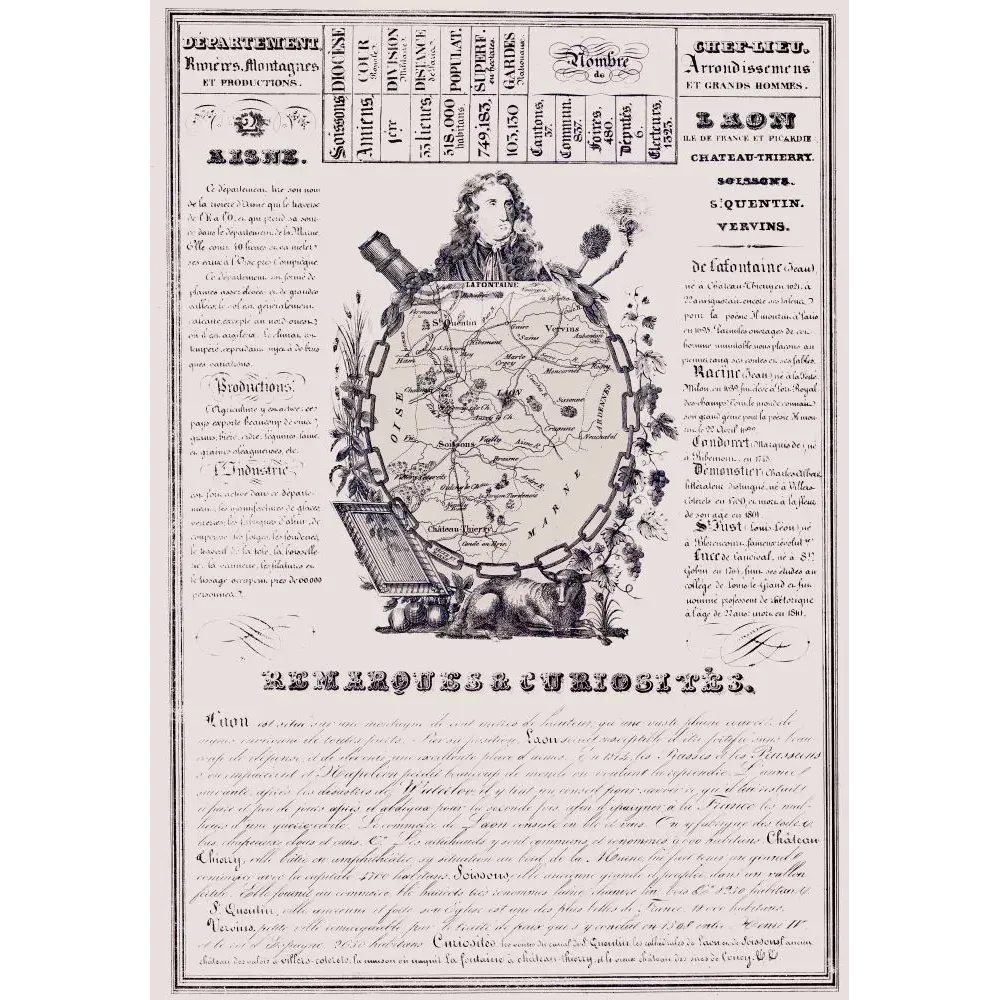 DÉPARTEMENT,
Rivières, Montagnes
ET PRODUCTIONS.
2
AISNE.
Soissons DIOCÈSE
Amiens, COUR Royale,
1ère DIVISION Militaire
33 lieues, DISTANCE de Paris
518,000 habitans. POPULAT.
749,183, SUPERF. en hectares.
103,130 GARDES Nationaux.
Nombre
de
Cantons, 37.
Commun. 837.
Foires, 480.
Députés, 6.
Electeurs, 1323.
CHEF-LIEU.
Arrondissemens
ET GRANDS HOMMES.
LAON
ILE DE FRANCE ET PICARDIE
CHATEAU-THIERRY.
SOISSONS.
ST QUENTIN.
VERVINS.
Ce département tire son nom
de la rivière d'Aisne qui le traverse
de l'E à l'O, et qui prend sa sour-
ce dans le département de la Marne.
Elle court 40 lieues et va mêler
ses eaux à l'Oise près Compiègne.
Ce département est formé de
plaines assez élevées et de grandes
vallées, le sol est généralement
calcaire, excepté au nord-ouest
où il est argileux. Le climat est
tempéré, cependant sujet à de brus
ques variations.
Productions.
L'Agriculture y est active; ce
pays exporte beaucoup de vins,
grains, bière, cidre, légumes, laine,
et graines oléagineuses, etc.
L'Industrie
est fort active dans ce départe-
ment, les manufactures de glaces,
verreries, les fabriques d'alun, de
couperose, les forges, les fonderies,
le travail de la tôle, la boisselle-
rie, la vannerie, les filatures et
le tissage occupent près de 60000
personnes.
LAFONTAINE
St Quentin
Vervins
Ribemont
Guise
Sains
Marle
Crecy
Ham
Moncornet
Rozoy
LAON
Sissonne
Craonne
Neuchatel
OISE
ARDENNES
Soissons
Vailly
Aisne R.
Braine
Vic
Villers Coterets
Oulchy le Ch.
Fère en Tardenois
Château-Thierry
Condé en Brie
MARNE
de Lafontaine (Jean)
né à Château-Thierry en 1621, à
22 ans ignorait encore ses talens
pour la poésie. Il mourut à Paris
en 1695. Parmi les ouvrages de cet
homme inimitable, nous plaçons au
premier rang ses contes et ses fables.
Racine (Jean) né à la Ferté
Milon, en 1639, fut élevé à Port-Royal
des champs. Tout le monde connait
son grand génie pour la poésie. Il mou-
rut le 22 Avril 1699.
Condorcet, Marquis de, né
à Ribemont, en 1743.
Démoustier (Charles Albert)
littérateur distingué, né à Villers-
Coterets en 1760, et mort à la fleur
de son age en 1801.
St Just (Louis Léon) né
à Blerencourt, fameux révolut.re
Luce de Lancival, né à St
Gobin en 1764, fit ses études au
collège de Louis-le-Grand et fut
nommé professeur de rhétorique
à l'âge de 22 ans: mort en 1810.
REMARQUES & CURIOSITÉS.
Laon est situé sur une montagne de cent mètres de hauteur, qu'une vaste plaine couverte de
vignes environne de toutes parts. Par sa position, Laon serait susceptible d'être fortifié sans beau
coup de dépense, et de devenir une excellente place d'armes. En 1814, les Russes et les Prussiens
s'en emparèrent et Napoléon perdit beaucoup de monde en voulant la reprendre. L'année
suivante après les désastres de Waterloo, il y tint un conseil pour savoir ce qu'il lui restait
à faire et peu de jours après il abdiqua pour la seconde fois afin d'épargner à la France les mal-
heurs d'une guerre civile. Le commerce de Laon consiste en blé et vins. On y fabrique des toiles
bas, chapeaux, clous et cuirs. Les artichauts y sont communs et renommés, 9,000 habitans. Château-
Thierry, ville bâtie en amphithéâtre, sa situation au bord de la Marne lui fait tenir un grand
commerce avec la capitale 4700 habitans. Soissons, ville ancienne grande et peuplée, dans un vallon
fertile. Elle fournit au commerce blé haricots très renommés farine, chanvre, lin, bois &c. 8250 habitans
St Quentin, ville ancienne et forte son Église est une des plus belles de France. 18000 habitans.
Vervins, petite ville remarquable par le traité de paix que s'y conclut en 1598 entre Henri IV
et le roi d'Espagne 2650 habitans Curiosités, les voutes du canal de St Quentin, les cathédrales de Laon et de Soissons, l'ancien
château des valois à villers-coterets, la maison où naquit La fontaine à château-thierry, et le vieux château des sires de Coucy.